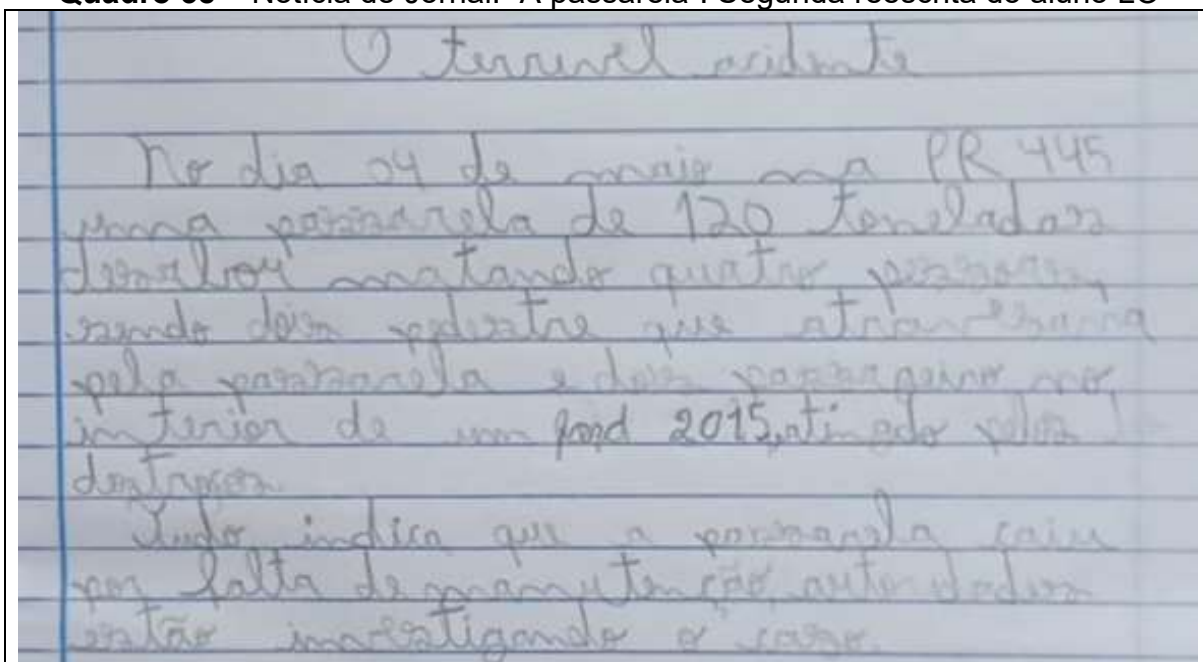 Quadro 35 – Notícia de Jornal: “A passarela”. Segunda reescrita do aluno LC
O terrivel acidente
No dia 04 de maio na PR 445
uma passarela de 120 toneladas
desabou matando quatro pessoas,
sendo dois pedestre que atravessava
pela passarela e dois passageiro no
interior de um ford 2015, atingido pelos
destroços.
Tudo indica que a passarela caiu
por falta de manutenção, autoridades
estão investigando o caso.